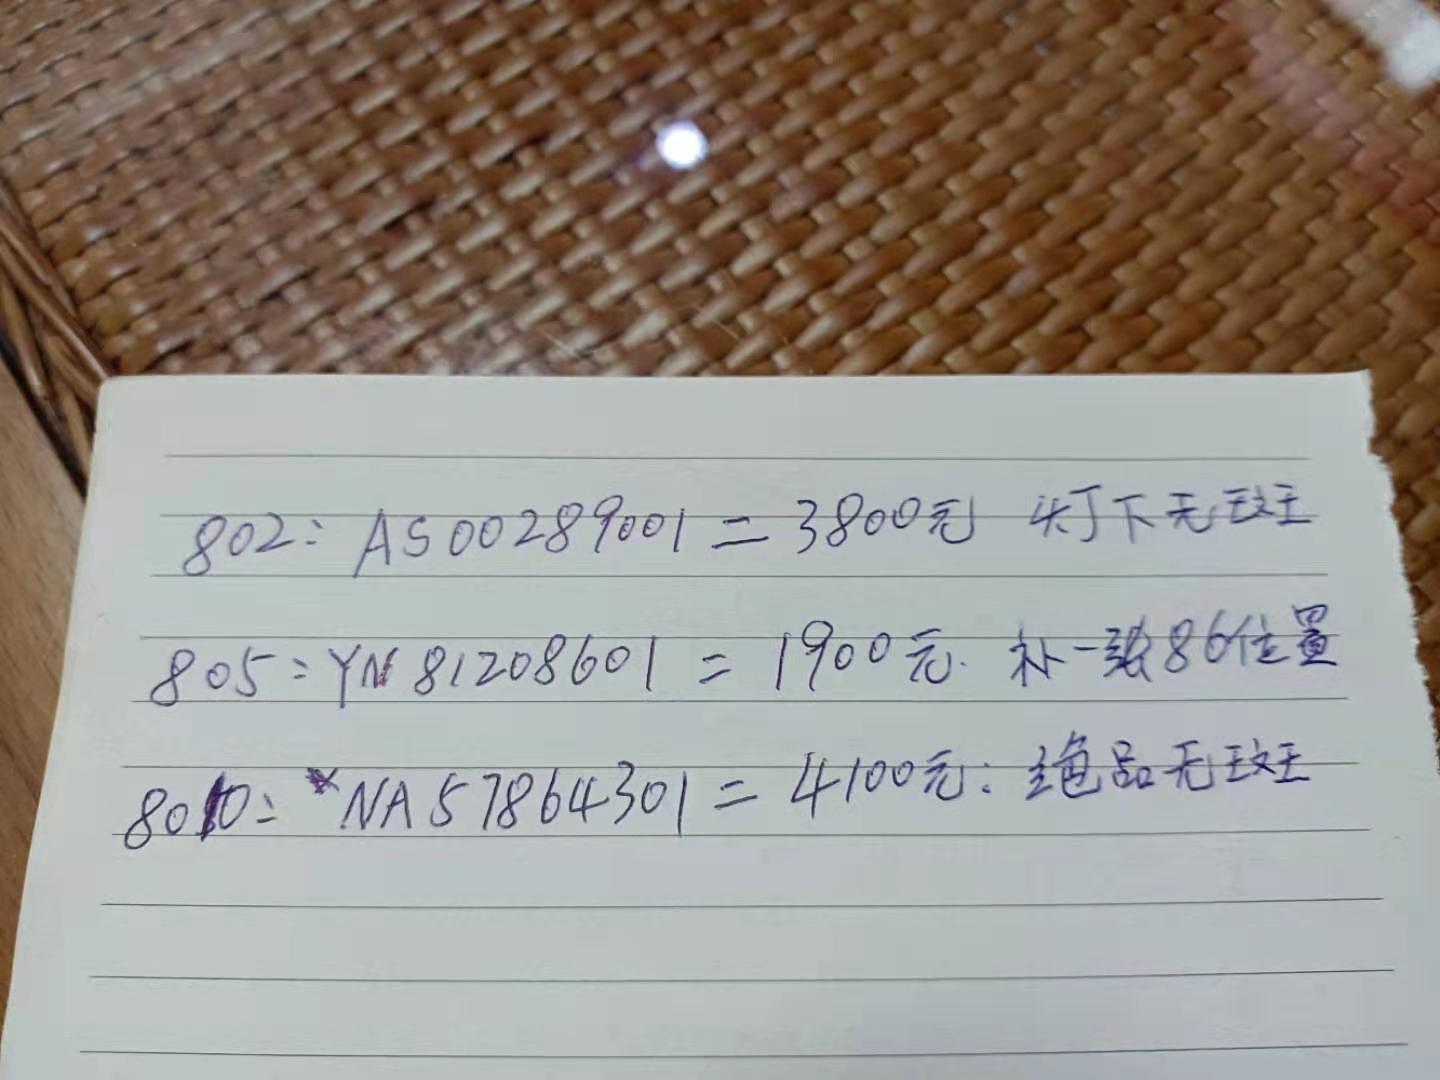 802：AS00289001＝3800元 灯下无斑
805：YN81208601＝1900元. 补一致86位置
8010：*NA57864301＝4100元：绝品无斑